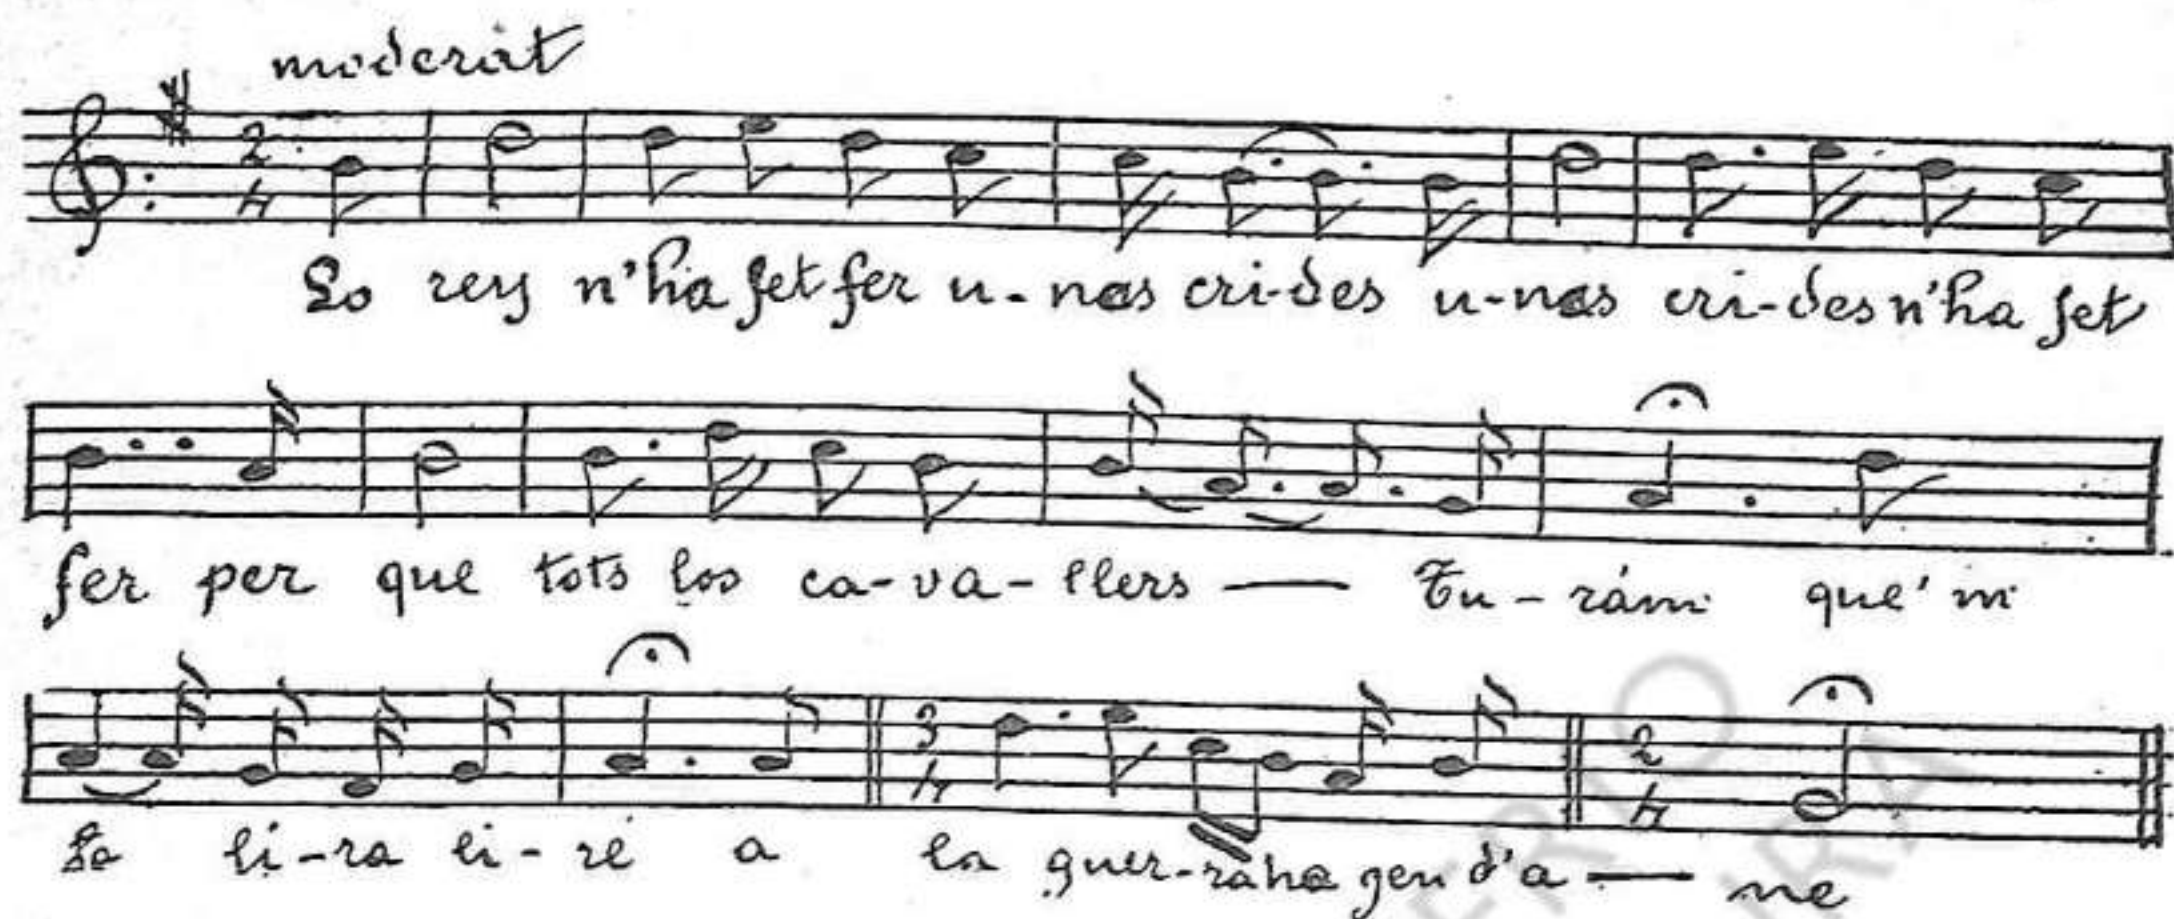 moderát
2
4
Lo rey n'ha fet fer u-nas cri-des u-nas cri-des n'ha fet
fer per que tots los ca-va-llers — Tu-rám que'm
3
4
2
4
La li-ra li-ré a la guer-ra ha gen d'a — ne